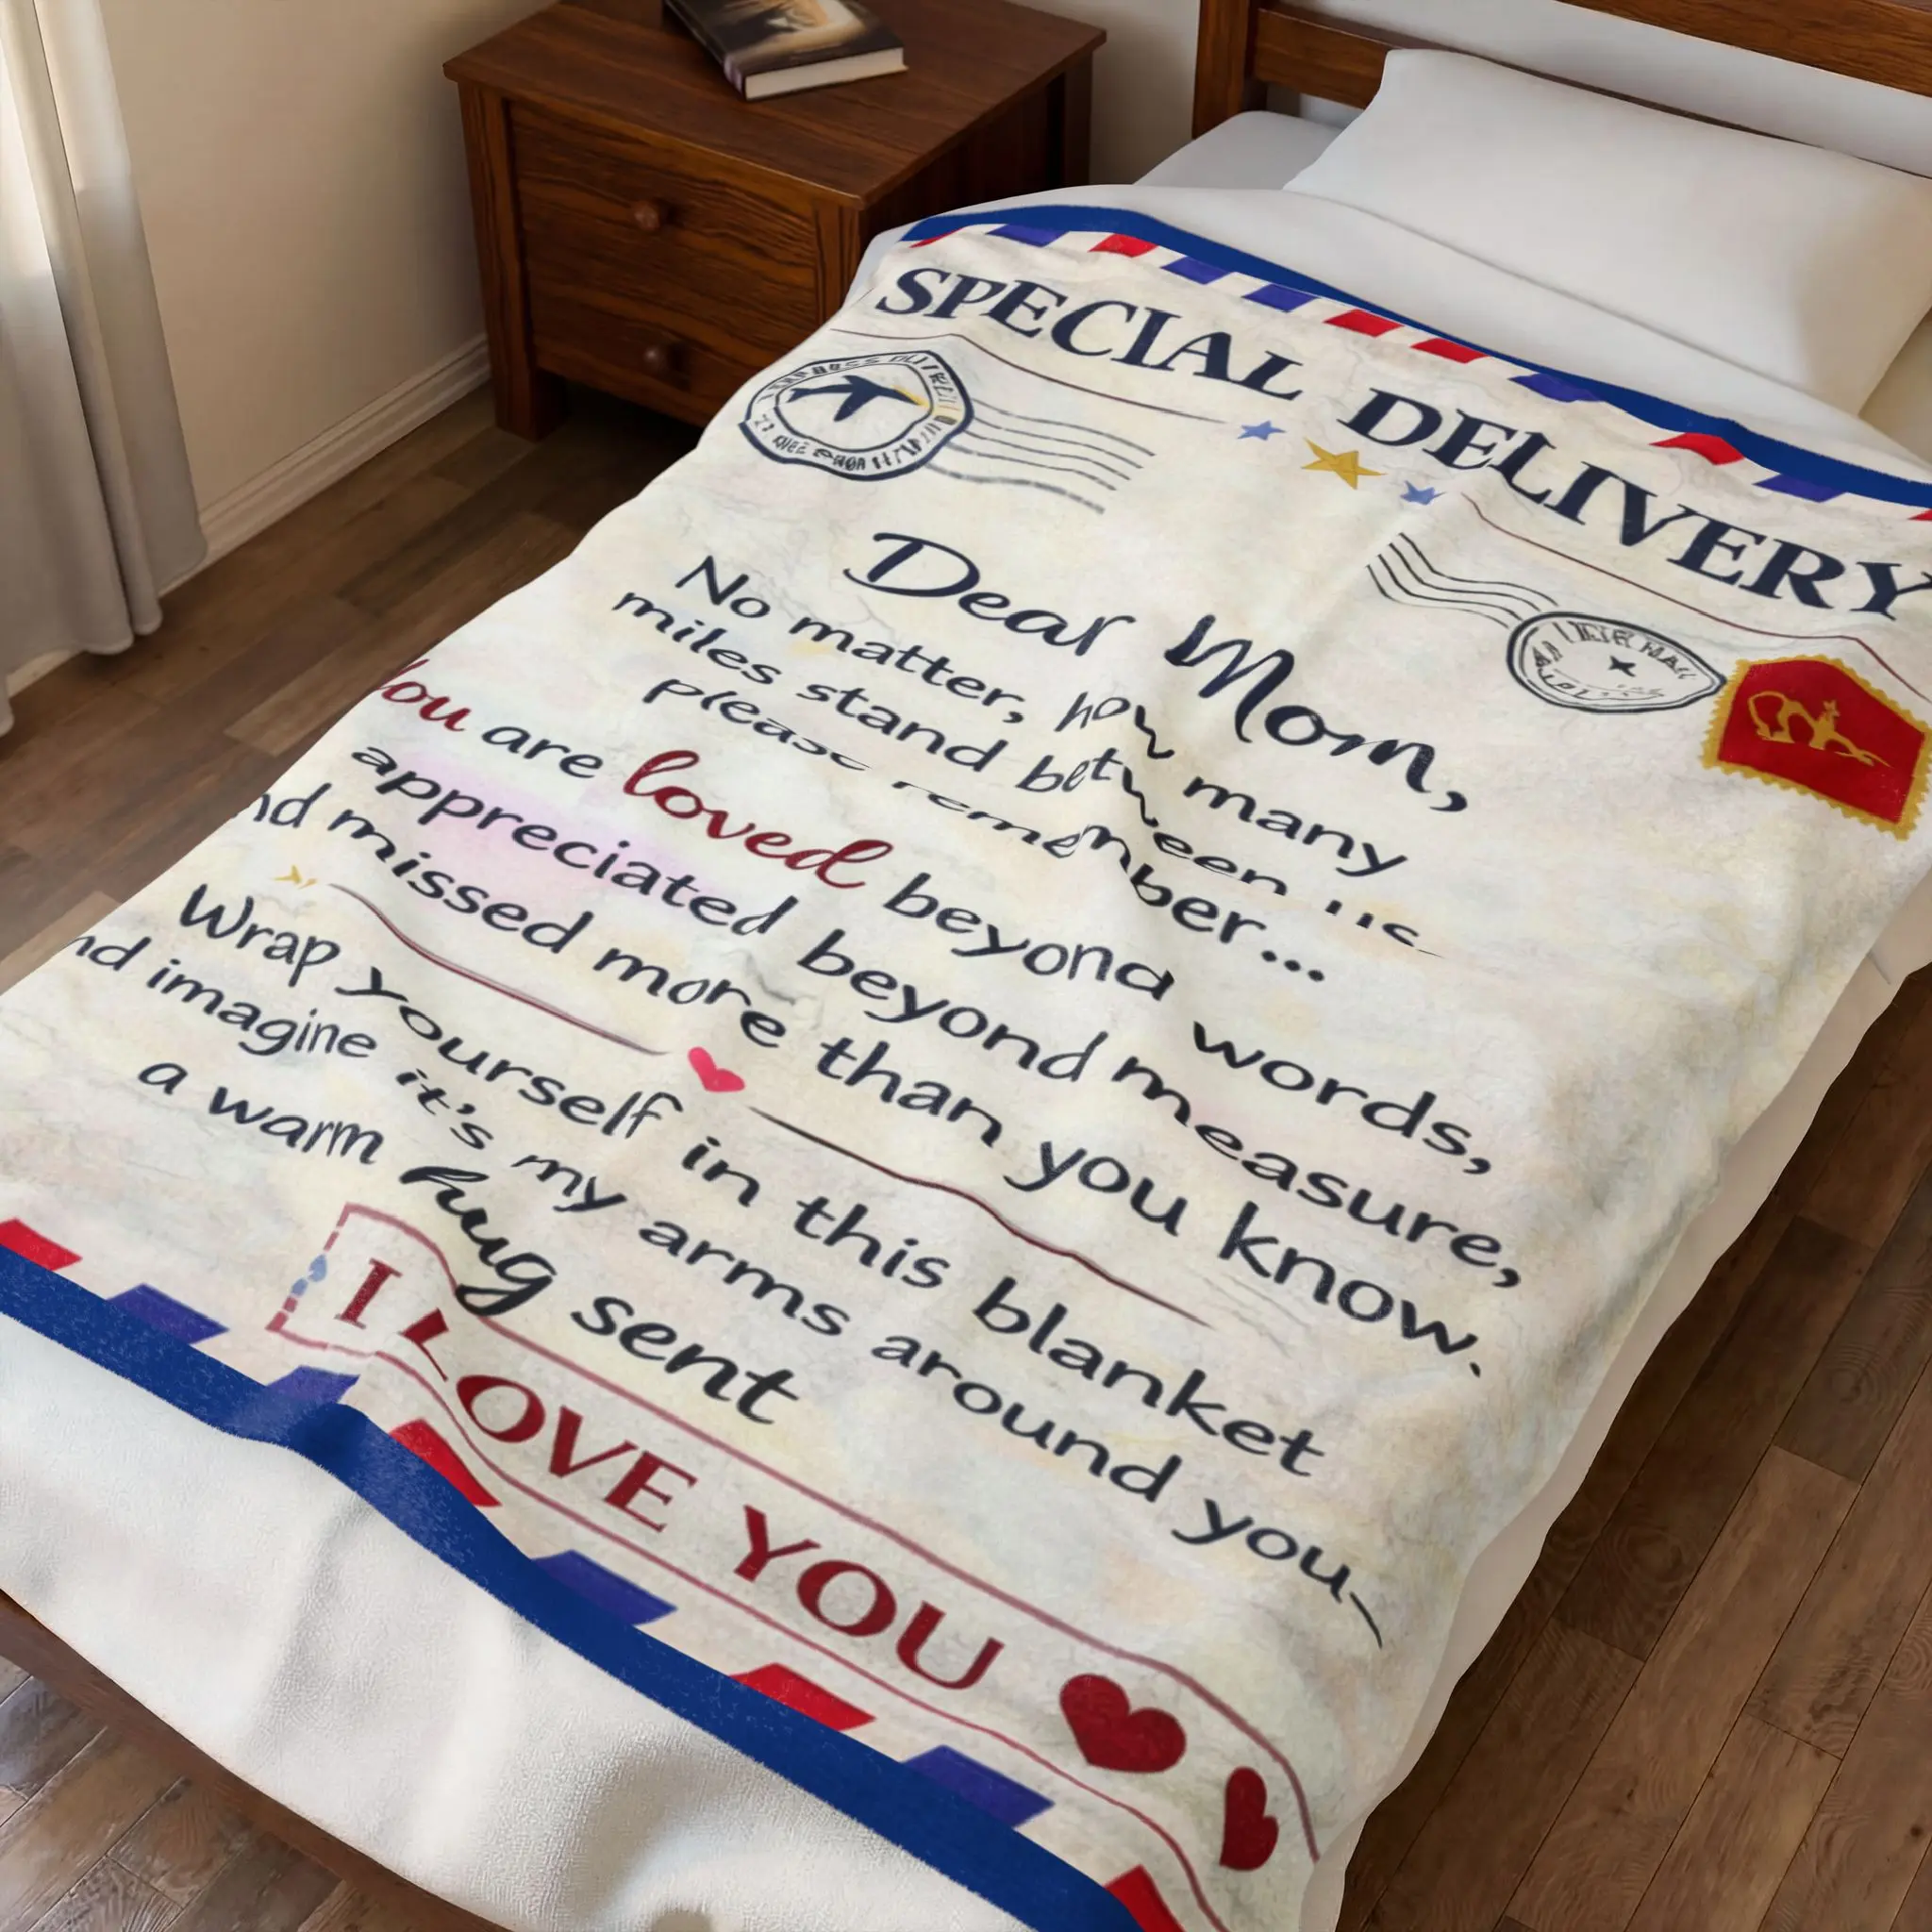 SPECIAL DELIVERY
Dear Mom,
No matter, how many
miles stand between
please remember...
You are loved beyond words,
appreciated beyond measure,
nd missed more than you know.
Wrap yourself in this blanket
nd imagine it's my arms around you
a warm hug sent
I LOVE YOU